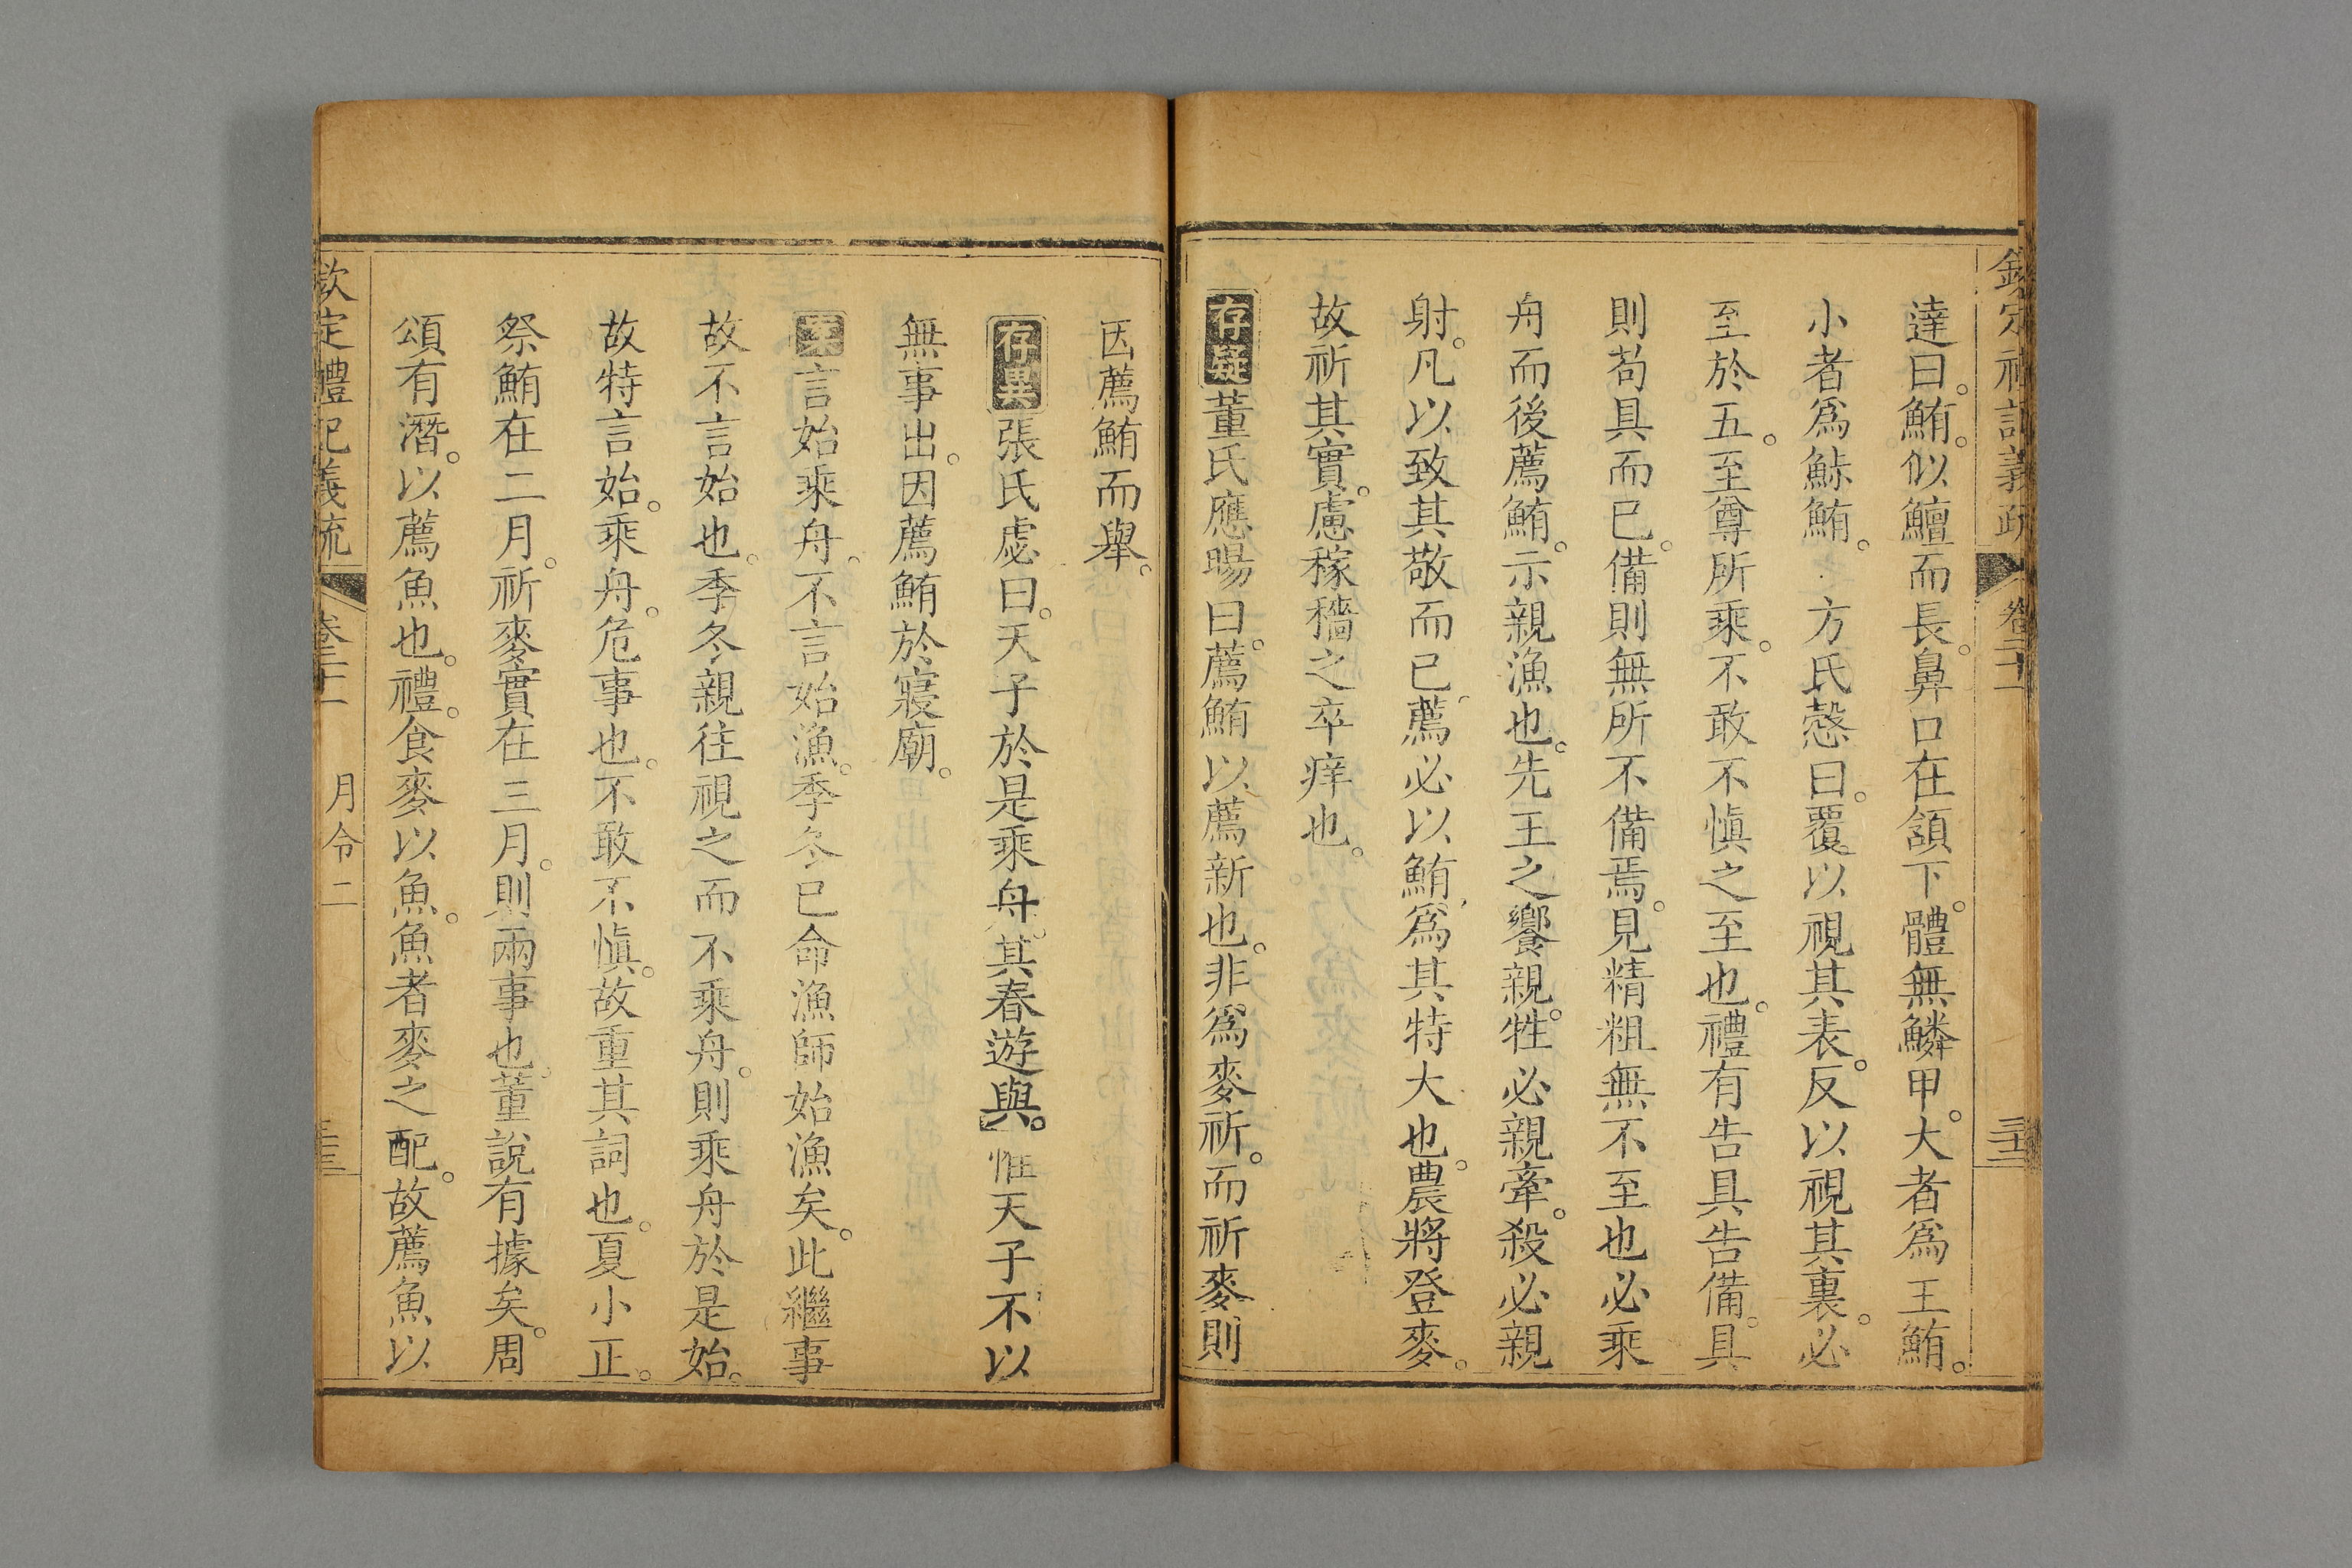 欽定禮記義疏 卷二十一 三十三
達曰。鮪。似鱣而長。鼻口在頷下。體無鱗甲。大者爲王鮪。
小者爲鮛鮪。 方氏慤曰。覆以視其表。反以視其裏。必
至於五。至尊所乘。不敢不愼之至也。禮有告具告備。具
則苟具而已。備則無所不備焉。見精粗無不至也必乘
舟而後薦鮪。示親漁也。先王之饗親。牲必親牽。殺必親
射。凡以致其敬而已。薦必以鮪。爲其特大也。農將登麥。
故祈其實。慮稼穡之卒痒也。
存疑董氏應暘曰。薦鮪以薦新也。非爲麥祈。而祈麥則
因薦鮪而舉。
存異張氏虙曰。天子於是乘舟。其春遊與。惟天子不以
無事出。因薦鮪於寢廟。
案言始乘舟。不言始漁。季冬已命漁師始漁矣。此繼事
故不言始也。季冬親往視之而不乘舟。則乘舟於是始。
故特言始。乘舟。危事也。不敢不愼。故重其詞也。夏小正。
祭鮪在二月。祈麥實在三月。則兩事也。董說有據矣。周
頌有潛。以薦魚也。禮。食麥以魚。魚者麥之配。故薦魚以
欽定禮記義疏 卷二十一 月令二 三十三